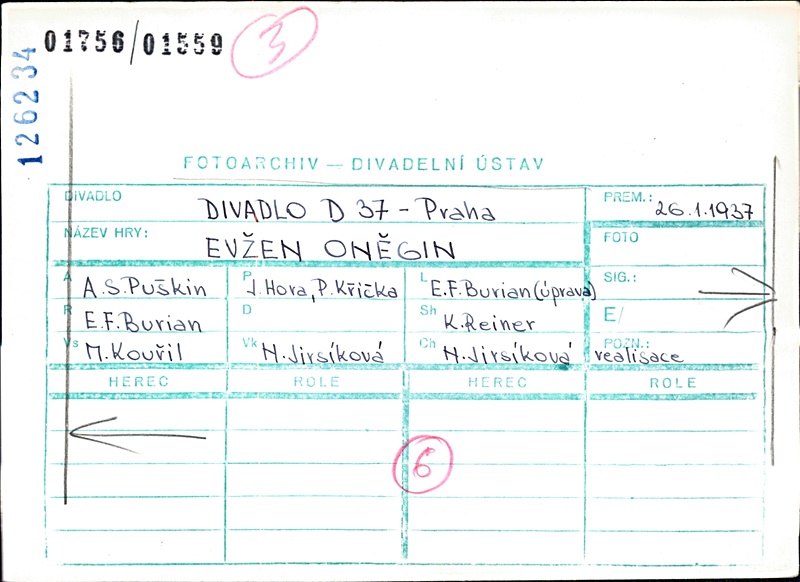 01756/01559
3
126234
FOTOARCHIV — DIVADELNÍ ÚSTAV
DIVADLO DIVADLO D 37 - Praha PREM.: 26.1.1937
NÁZEV HRY: EVŽEN ONĚGIN FOTO
A A.S.Puškin P J.Hora, P.Křička L E.F.Burian (úprava) SIG.:
R E.F.Burian D Sh K.Reiner E/
Vs M.Kouřil Vk N.Jirsíková Ch N.Jirsíková POZN.: realisace
HEREC ROLE HEREC ROLE
6